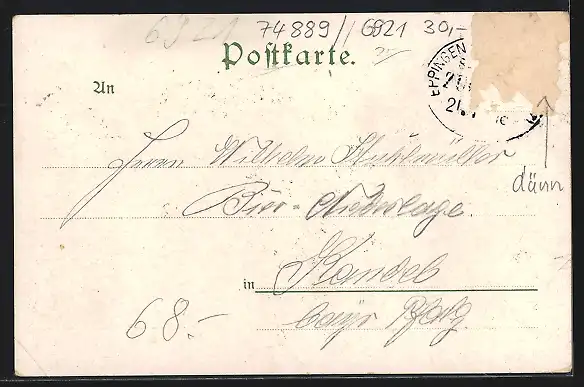 6921 74889//6921 30,-
Postkarte.
EPPINGEN
An
dünn
Herrn Wilhelm Stuhlmüller
Bier-Niederlage
in Kandel
bayr Pfalz
68.-